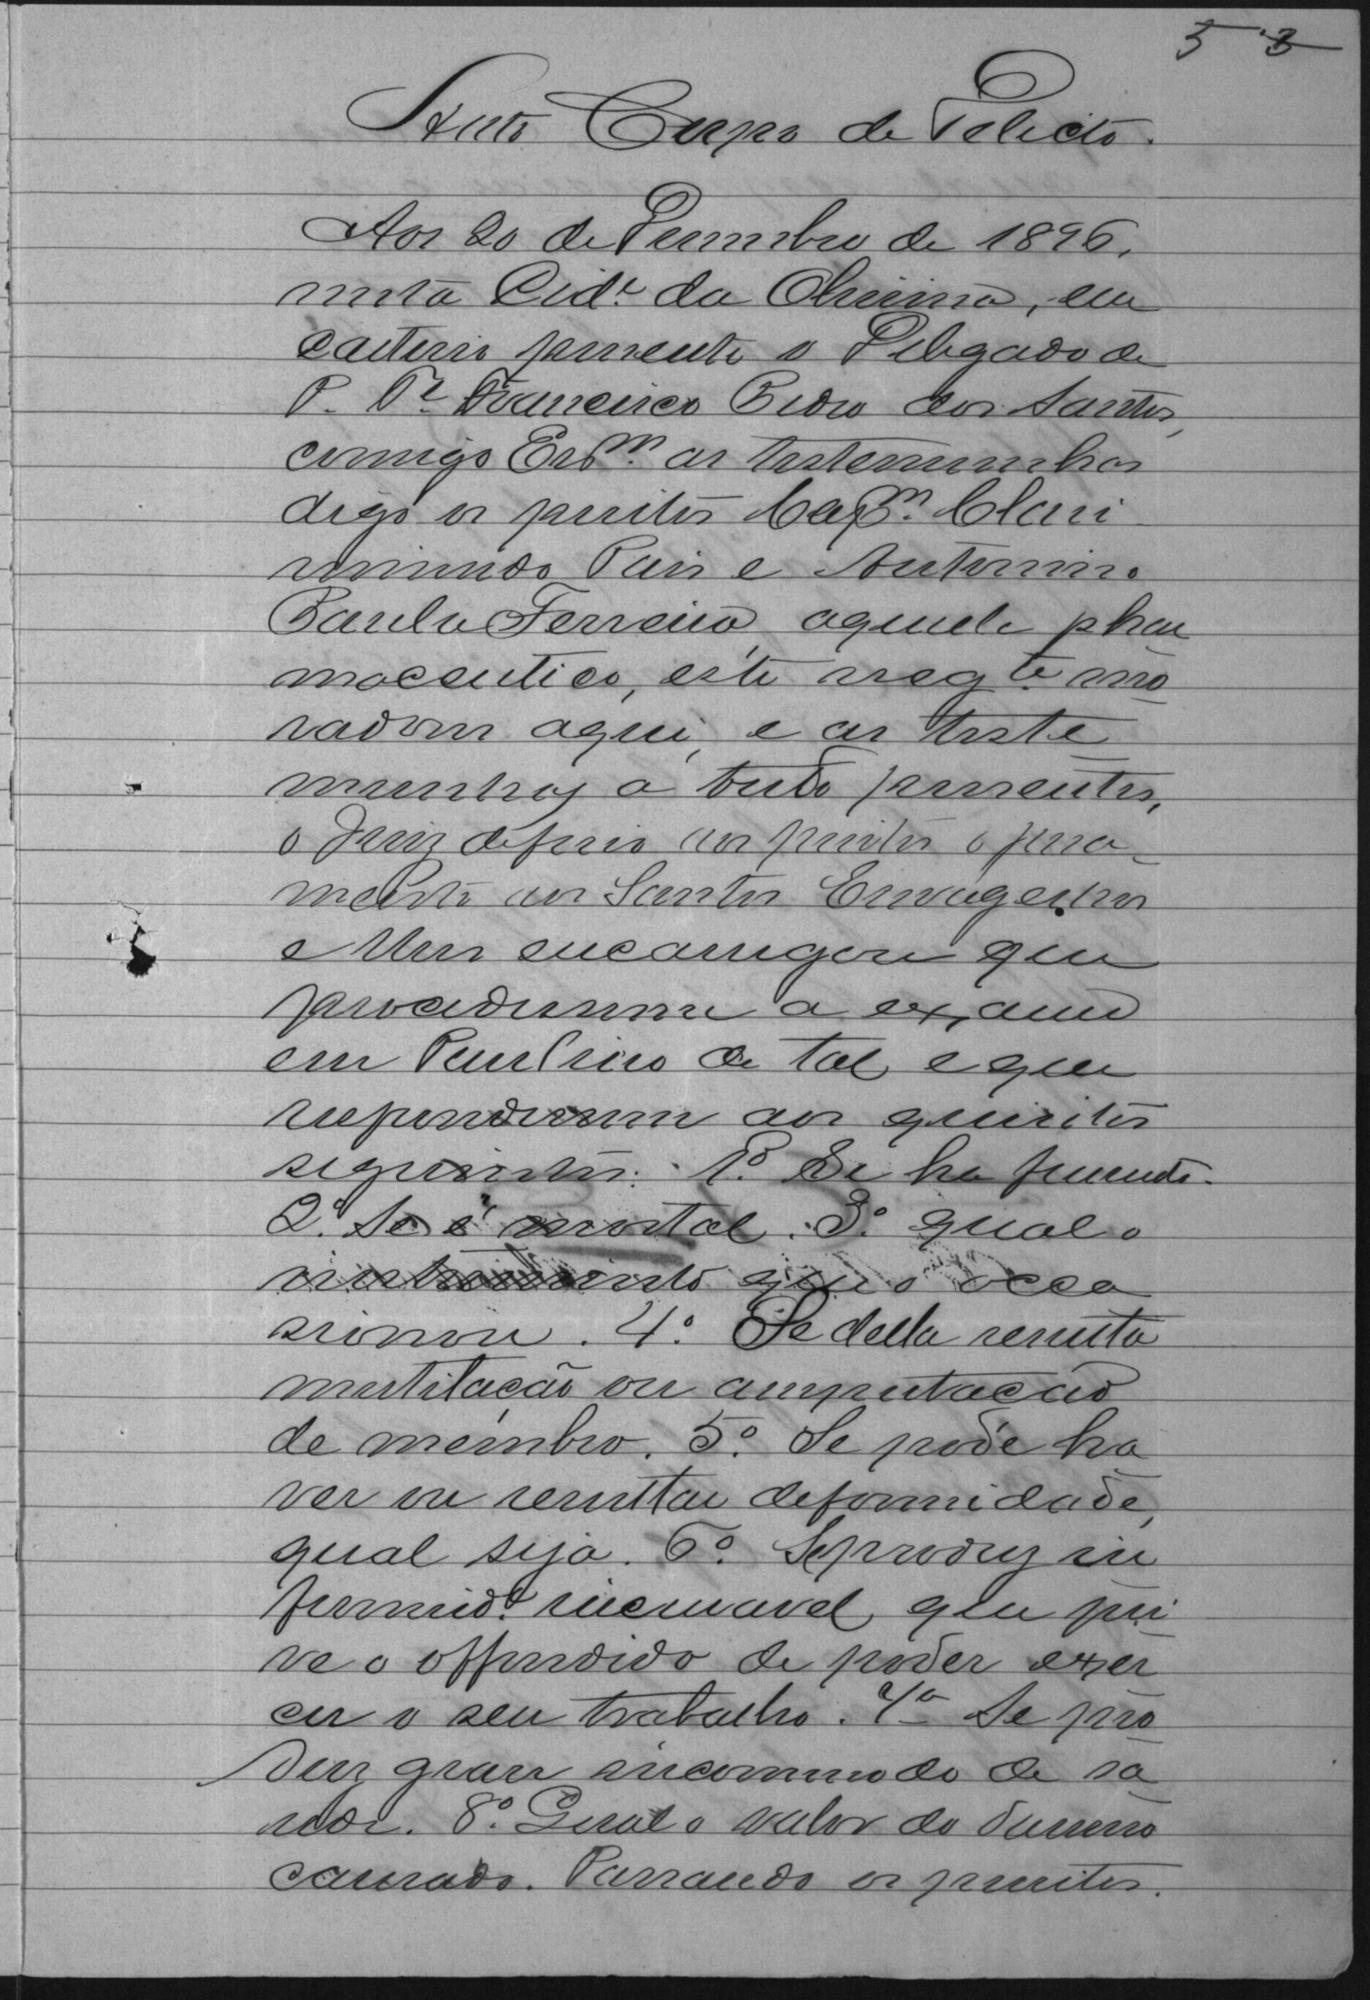 5 3
Auto Corpo de Delicto.
Aos 20 de Dezembro de 1896,
nesta Cid.e da Oliveira, em
cartorio presente o Delegado de
P. Francisco Pedro dos Santos,
comigo Escr.m as testemunhas
digo os peritos Cap.m Clari
mundo Pais e Antonino
Paula Ferreira, aquele phar
maceutico, este neg.te mo
radores aqui, e as teste
munhas a tudo presentes,
o Juiz deferio aos peritos o jura-
mento aos Santos Evangelhos
e lhes encarregou que
procedessem a exame
em Paulino de tal, e que
respondessem aos quisitos
seguintes: 1.º Se ha ferimento.
2.º Se é mortal. 3.º qual o
instrumento que o occa
sionou. 4.º Se della resulta
mutilação ou amputação
de membro. 5.º Se pode ha
ver ou resultar deformidade,
qual seja. 6.º Se produz in
fermid.e incuravel, que pri
ve o offendido de poder exer
cer o seu trabalho. 7.º Se pro
duz grave incommodo de sa
ude. 8.º Qual o valor do damno
causado. Passando os peritos.